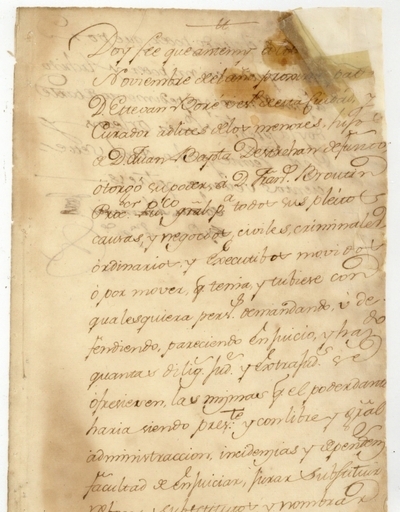 Doy fee que ante mi
Noviembre de el año proximo pas
D. Estevan vez.º de esta Ciudad y
Curador adlites de los menores, hijos
de D. Juan Bapta. Destrehan defuncto
otorgó su poder, a D. Fran.co
gral. p.a todos sus pleitos
causas, y negocios, civiles, criminales
ordinarios, y executibos movidos
ó, por mover, q tenia, y tubiese con
qualesquiera pers.s demandando, ó de
fendiendo, pareciendo en juicio, y hasdo
quantas dilig.s Jud.s y extrajud.s se
ofresieren, las mismas q el poderdante
haria siendo pres.te y con libre y gral
administraccion, incidencias y dependen
facultad de enjuiciar, jurar Substituir
substitutos y nombrar